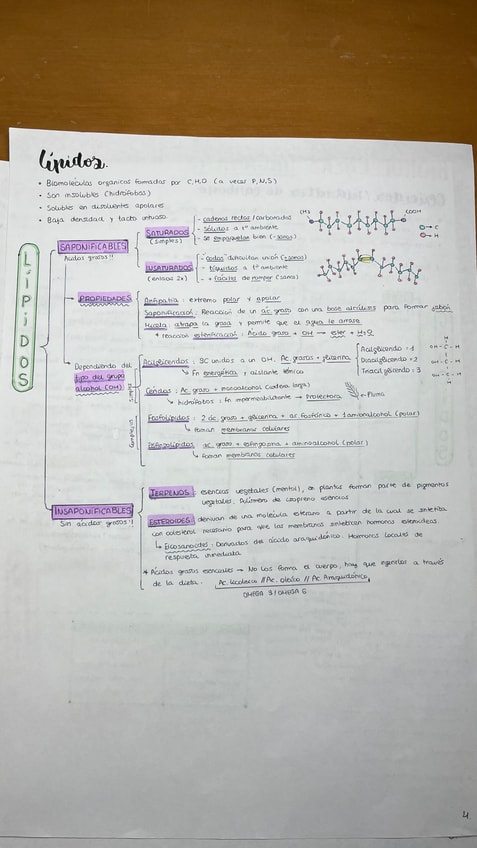 Lípidos.
• Biomoléculas orgánicas formadas por C,H,O (a veces P,N,S)
• Son insolubles (hidrófobas)
• Solubles en disolventes apolares
• Baja densidad y tacto untuoso
LÍPIDOS
SAPONIFICABLES
Ácidos grasos!!
SATURADOS
(simples)
- cadenas rectas / carbonadas
- Sólidos a tª ambiente
- se empaquetan bien
CH3
COOH
→ C
→ H
INSATURADOS
(enlaces 2x)
- "codos" dificultan unión
- líquidos a tª ambiente
- + fáciles de romper
PROPIEDADES
Antipatía: extremo polar y apolar
Saponificación: Reacción de un ác. graso con una base alcalina para formar jabón
Micela: atrapa la grasa y permite que el agua le arrase
* (reacción esterificación: Ácido graso + OH → ester + H2O
Dependiendo del
tipo del grupo
alcohol (OH)
Simples
Acilglicéridos: 3C unidos a un OH. Ác. grasos + glicerina
↳ Fn energética y aislante térmico
Acilglicérido · 1
Diacilglicérido · 2
Triacilglicérido · 3
Céridos: Ác. graso + monoalcohol (cadena larga)
↳ hidrófobos: Fn impermeabilizante → Protectora
Pluma
Complejos
Fosfolípidos: 2 ác. graso + glicerina + ác. fosfórico + 1 aminoalcohol (polar)
↳ forman membranas celulares
Esfingolípidos: ác. graso + esfingosina + aminoalcohol (polar)
↳ forman membranas celulares
INSAPONIFICABLES
Sin ácidos grasos!!
TERPENOS: esencias vegetales (mentol), en plantas forman parte de pigmentos
vegetales. Polímero de isopreno esencias
ESTEROIDES: derivan de una molécula esterano a partir de la cual se sintetiza
con colesterol necesario para vire las membranas sintetizan hormonas esteroideas.
↳ Eicosanoides: Derivados del ácido araquidónico. Hormonas locales de
respuesta inmediata
* Ácidos grasos esenciales → No los forma el cuerpo, hay que ingerirlos a través
de la dieta. Ac. linoleico // Ac. oleico // Ac. Araquidónico
OMEGA 3 / OMEGA 6
4